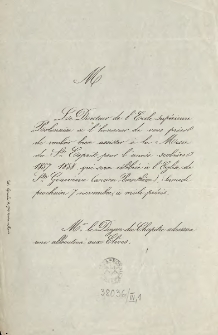 M
Le Directeur de l'École supérieure
Polonaise a l'honneur de vous prier
de vouloir bien assister à la Messe
du St. Esprit pour l'année scolaire
1857 1858 qui sera célébrée à l'Église de
Ste Geneviève (ancien Panthéon), Samedi
prochain 7 novembre, à midi précis.
Mr. le Doyen du Chapitre adressera
une allocution aux Élèves.